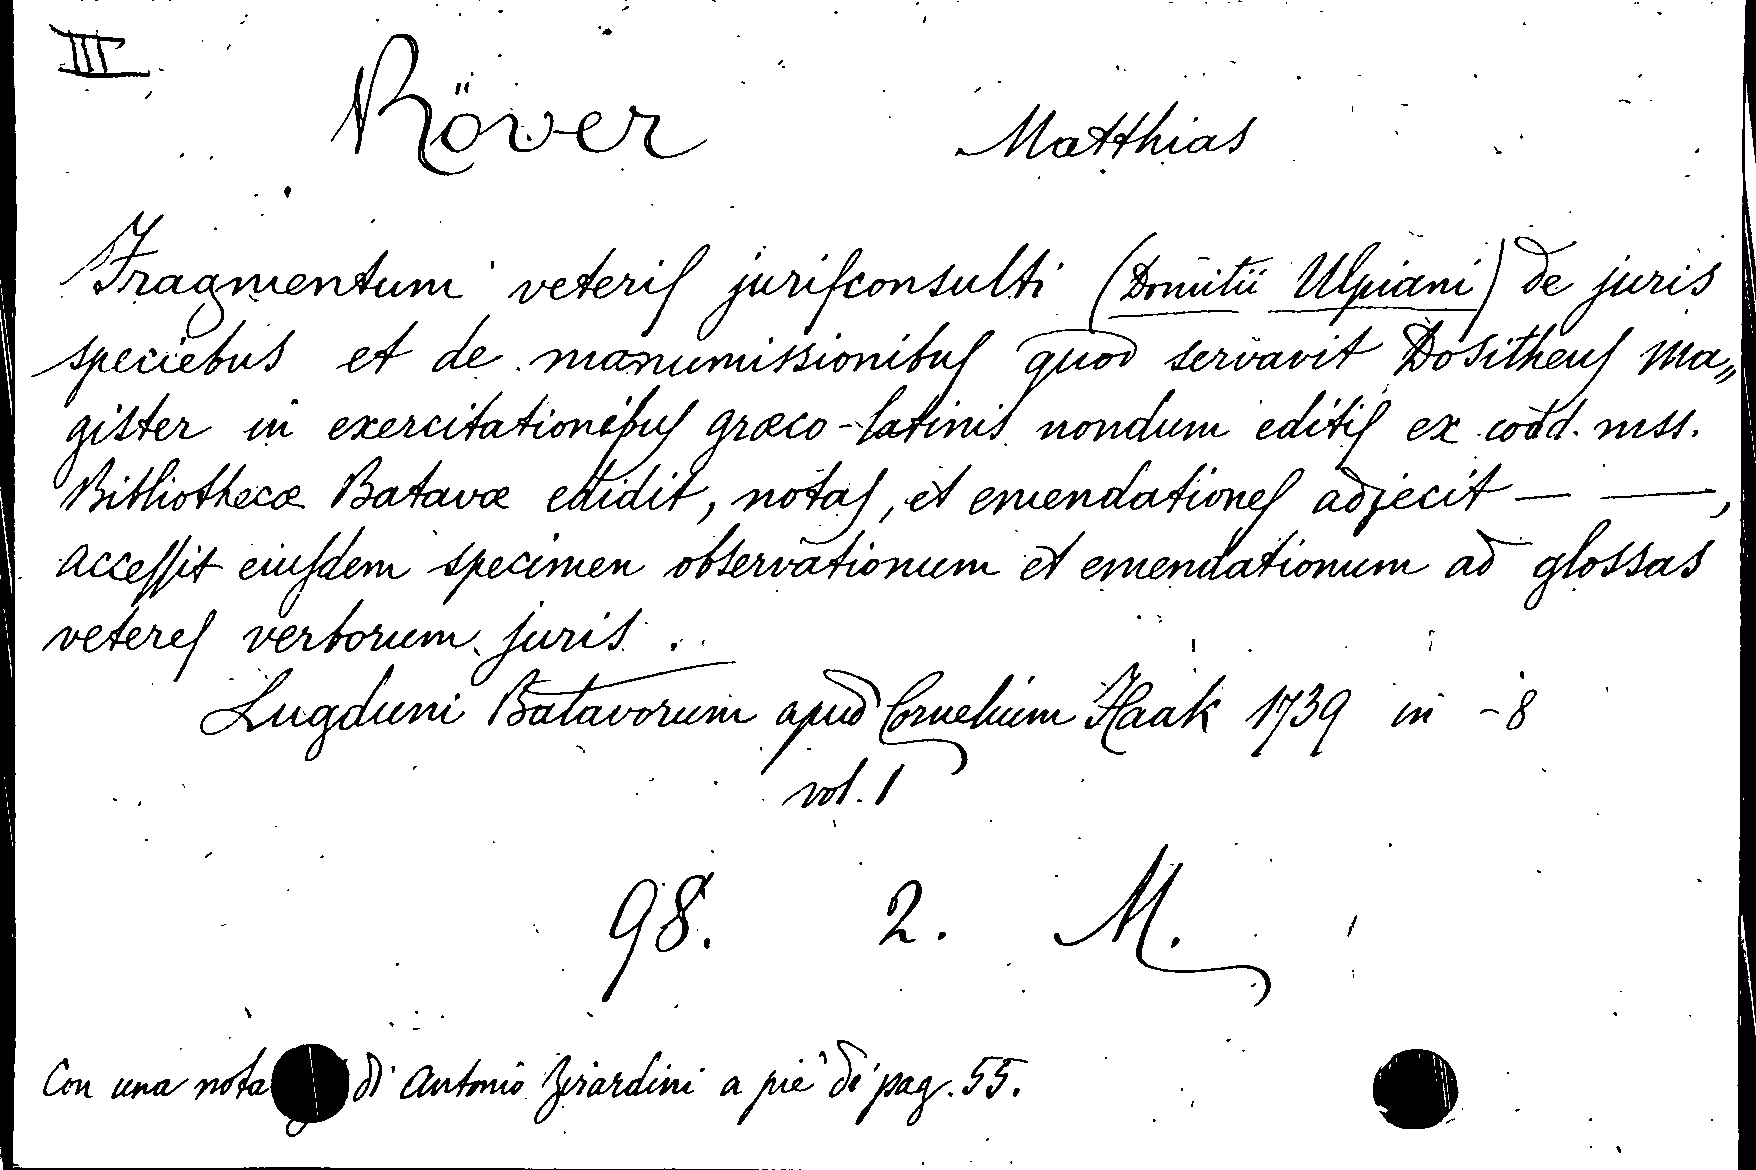 III
Röver Matthias
Fragmentum veteris jurisconsulti (Domitii Ulpiani) de juris
speciebus et de manumissionibus quod servavit Dositheus Ma„
gister in exercitationibus græco-latinis nondum editis ex codd. mss.
Bibliothecæ Batavæ edidit, notas, et emendationes adjecit — —,
accessit eiusdem specimen observationum et emendationum ad glossas
veteres verborum juris.
Lugduni Batavorum apud Cornelium Haak 1739 in -8
vol. 1
98. 2. M.
Con una nota di Antonio Zirardini a piè di pag. 55.